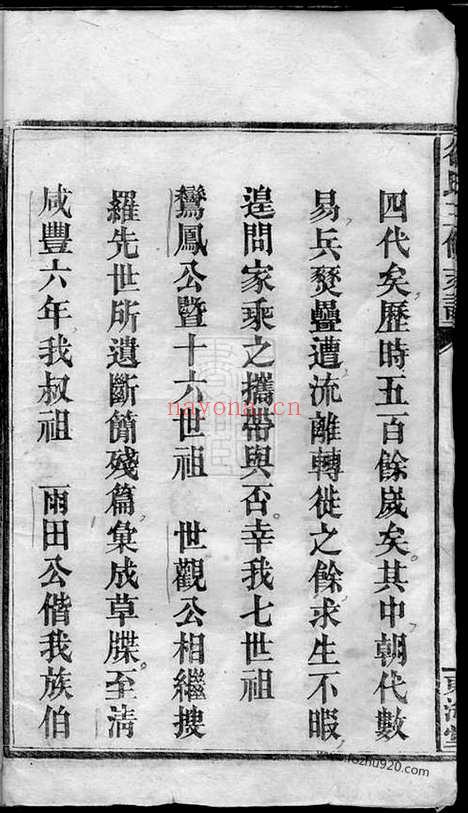 四代矣歷時五百餘嵗矣其中朝代數
易兵燹疊遭流離轉徙之餘求生不暇
遑問家乘之攜帶與否幸我七世祖
鸞鳳公暨十六世祖 世觀公相繼搜
羅先世所遺斷簡殘篇彙成草牒至清
咸豐六年我叔祖 雨田公偕我族伯
nayona.cn
www.fozhu920.com